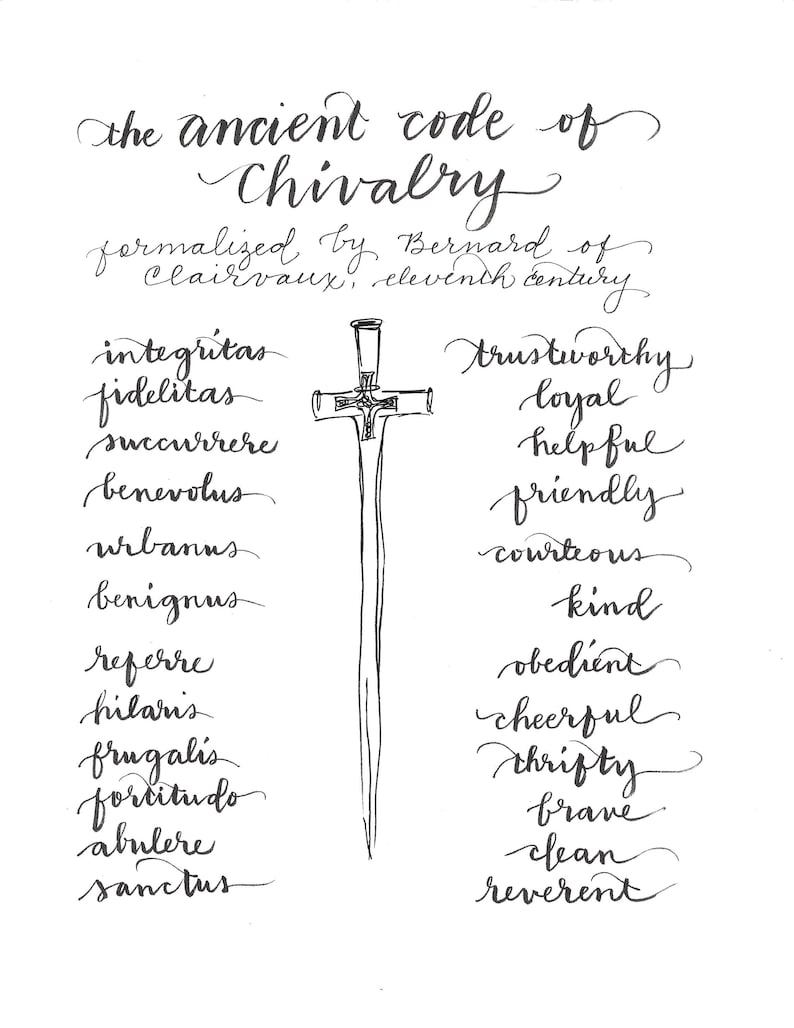 the ancient code of
Chivalry
formalized by Bernard of
Clairvaux, eleventh century
integritas trustworthy
fidelitas loyal
succurrere helpful
benevolus friendly
urbanus courteous
benignus kind
referre obedient
hilaris cheerful
frugalis thrifty
fortitudo brave
abulere clean
sanctus reverent